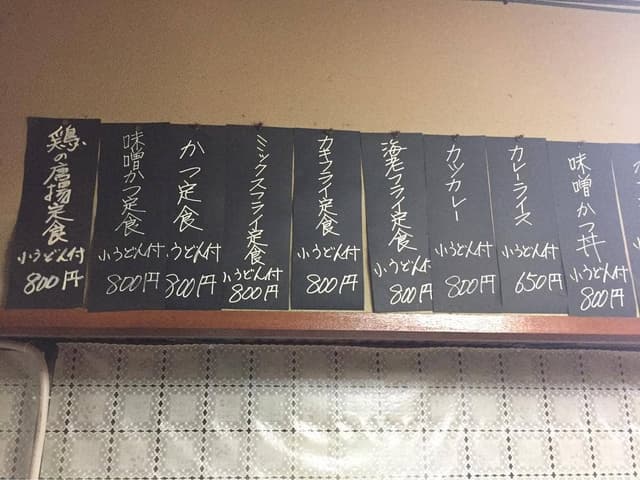 鶏の唐揚定食
小うどん付
800円
味噌かつ定食
小うどん付
800円
かつ定食
小うどん付
800円
ミックスフライ定食
小うどん付
800円
カキフライ定食
小うどん付
800円
海老フライ定食
小うどん付
800円
カツカレー
小うどん付
800円
カレーライス
小うどん付
650円
味噌かつ丼
小うどん付
800円